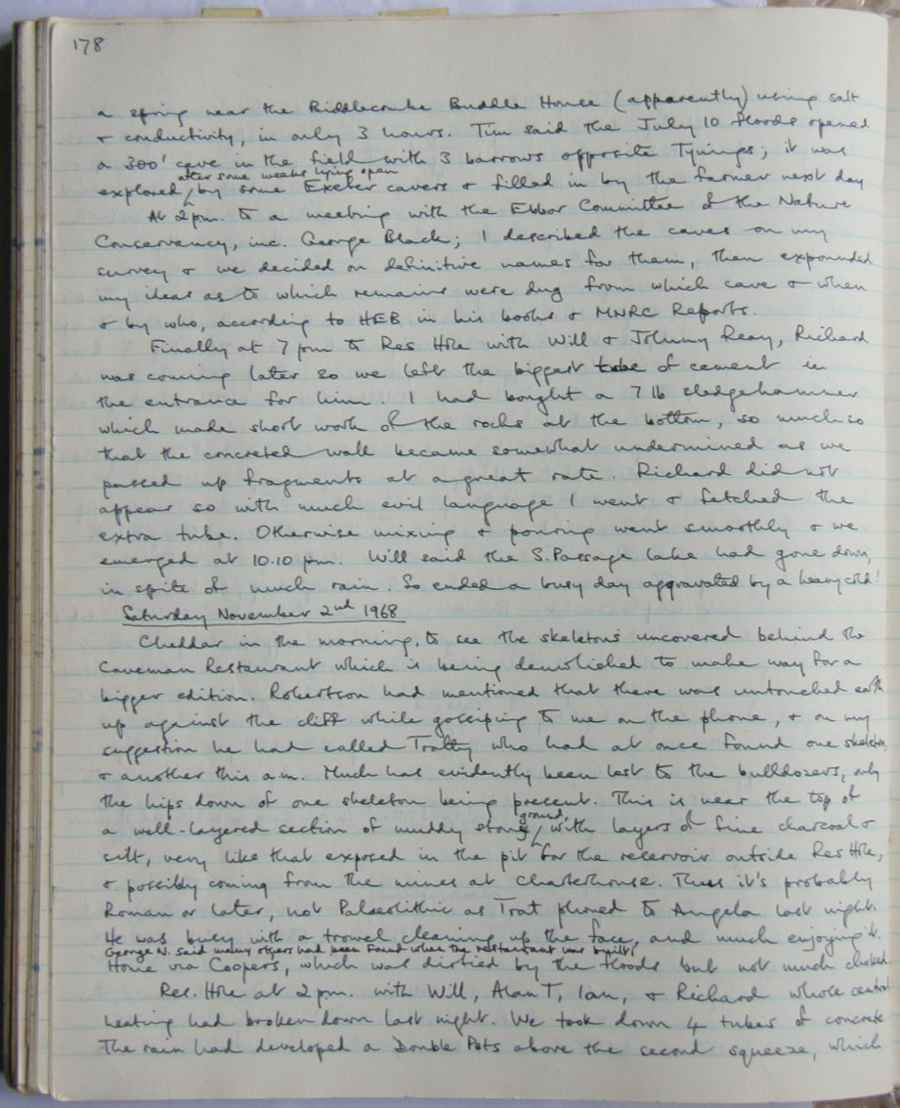 178
a spring near the Riddlecombe Buddle House (apparently) using salt
& conductivity, in only 3 hours. Tim said the July 10 floods opened
a 300' cave in the field with 3 barrows opposite Tynings; it was
after some weeks lying open
explored by some Exeter cavers & filled in by the farmer next day
At 2 pm. to a meeting with the Ebbor Committee of the Nature
Conservancy, inc. George Black; I described the caves on my
survey & we decided on definitive names for them, then expounded
my ideas as to which remains were dug from which cave & when
& by who, according to HEB in his books & MNRC Reports.
Finally at 7 pm to Res Hole with Will & Johnny Reay, Richard
was coming later so we left the biggest tube of cement in
the entrance for him. I had bought a 7 lb sledgehammer
which made short work of the rocks at the bottom, so much so
that the concreted wall became somewhat undermined as we
passed up fragments at a great rate. Richard did not
appear so with much evil language I went & fetched the
extra tube. Otherwise mixing & pouring went smoothly & we
emerged at 10.10 pm. Will said the S. Passage lake had gone down,
in spite of much rain. So ended a busy day aggravated by a heavy cold!
Saturday November 2nd 1968
Cheddar in the morning, to see the skeletons uncovered behind the
Caveman Restaurant which is being demolished to make way for a
bigger edition. Robertson had mentioned that there was untouched earth
up against the cliff while gossiping to me on the phone, & on my
suggestion he had called Tratty who had at once found one skeleton,
& another this a.m. Much has evidently been lost to the bulldozers, only
the hips down of one skeleton being present. This is near the top of
ground,
a well-layered section of muddy stony with layers of fine charcoal &
silt, very like that exposed in the pit for the reservoir outside Res Hole,
& possibly coming from the mines at Charterhouse. Thus it's probably
Roman or later, not Palaeolithic as Trat phoned to Angela last night.
He was busy with a trowel cleaning up the face, and much enjoying it.
George W. said many others had been found when the restaurant was built,
Home via Coopers, which was dirtied by the floods but not much choked.
Res. Hole at 2 pm. with Will, Alan T, Ian, & Richard whose central
heating had broken down last night. We took down 4 tubes of concrete
The rain had developed a Double Pots above the second squeeze, which